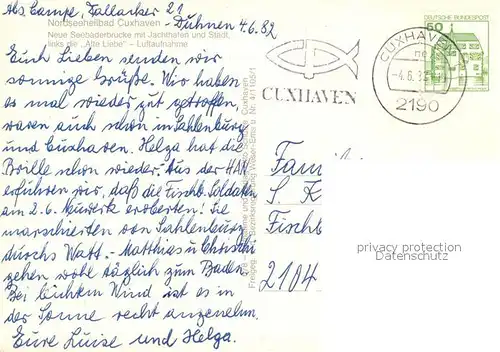 Abs. Campe, Fallacker 21
Duhnen 4.6.82
Nordseeheilbad Cuxhaven
Neue Seebäderbrücke mit Jachthafen und Stadt,
links die „Alte Liebe" – Luftaufnahme
Euch Lieben senden wir
sonnige Grüße. Wir haben
es mal wieder gut getroffen,
waren auch schon in Sahlenburg
und Cuxhaven. Helga hat die
Brille schon wieder. Aus der HAN
erfuhren wir, daß die Fischb. Soldaten
am 2.6. Neuwerk eroberten! Sie
marschierten von Sahlenburg
durchs Watt. – Matthias u. Chrischi
gehen wohl täglich zum Baden.
Bei leichtem Wind ist es in
der Sonne recht angenehm.
Eure Luise und Helga.
CUXHAVEN
CUXHAVEN
-4.6.82
2190
DEUTSCHE BUNDESPOST
50
Fam
S. K
Fischb
2104
privacy protection
Datenschutz